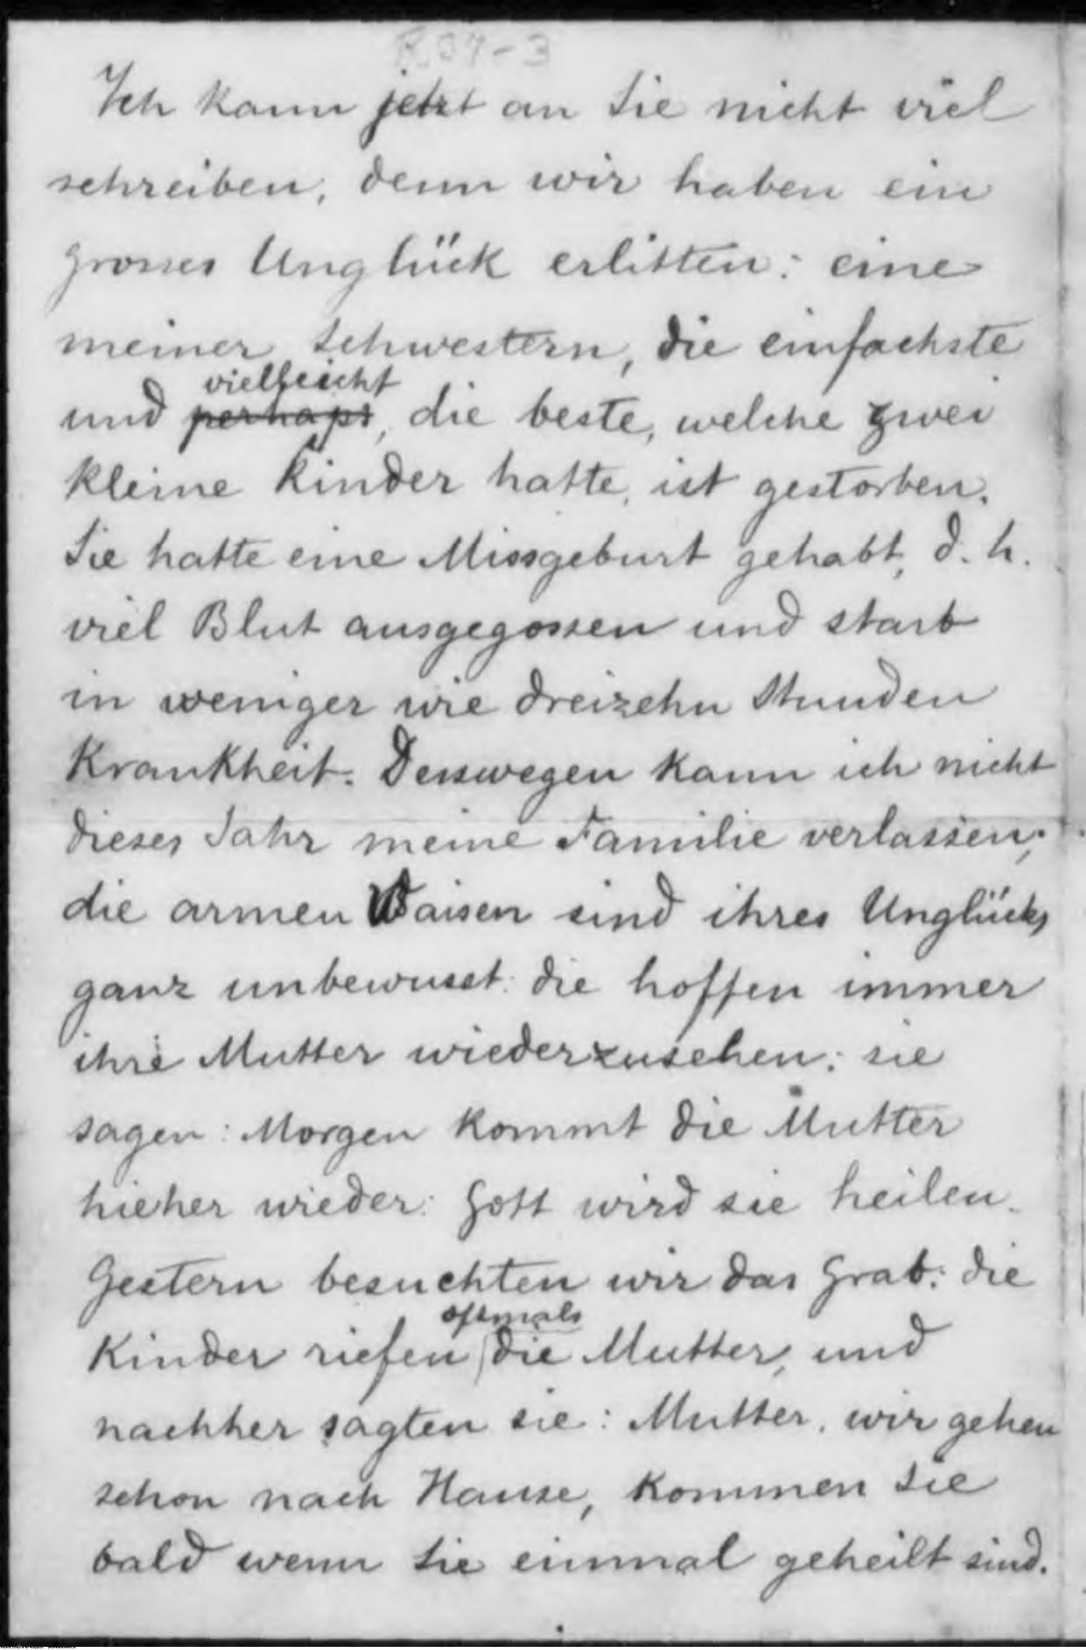 R07-3
Ich kann jetzt an Sie nicht viel
schreiben, denn wir haben ein
grosses Unglück erlitten: eine
meiner Schwestern, die einfachste
vielleicht
und perhaps, die beste, welche zwei
kleine Kinder hatte, ist gestorben.
Sie hatte eine Missgeburt gehabt, d. h.
viel Blut ausgegossen und starb
in weniger wie dreizehn Stunden
Krankheit. Desswegen kann ich nicht
dieses Jahr meine Familie verlassen;
die armen Waisen sind ihres Unglücks
ganz unbewusst: die hoffen immer
ihre Mutter wiederzusehen; sie
sagen: Morgen kommt die Mutter
hieher wieder: Gott wird sie heilen.
Gestern besuchten wir das Grab: die
oftmals
Kinder riefen die Mutter, und
nachher sagten sie: Mutter, wir gehen
schon nach Hause, kommen Sie
bald wenn Sie einmal geheilt sind.